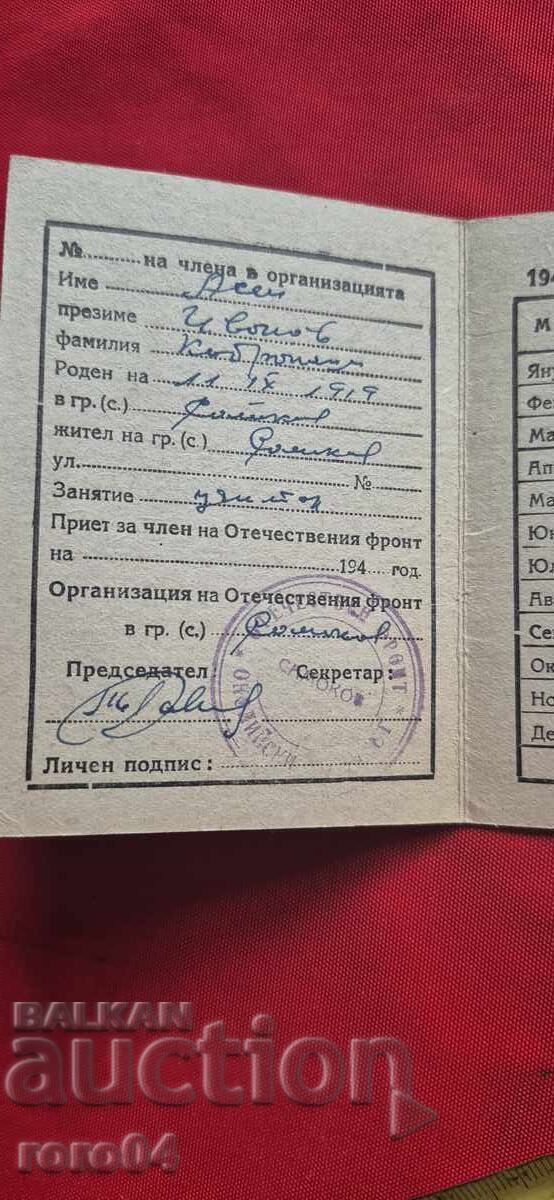 № на члена в организацията
Име Асен
презиме Иванов
фамилия
Роден на 11 IX 1919
в гр. (с.) Самоков
жител на гр. (с.) Самоков
ул. №
Занятие
Приет за член на Отечествения фронт
на 194 год.
Организация на Отечествения фронт
в гр. (с.) Самоков
Председател Секретар:
Личен подпис:
ОТЕЧЕСТВЕН ФРОНТ * ГР.
САМОКОВ
194
М
Яну
Фев
Ма
Ап
Ма
Юн
Юл
Ав
Сеп
Ок
Но
Де
BALKAN
auction
roro04